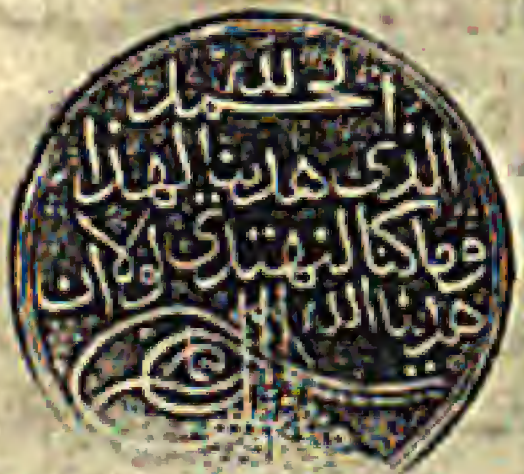 الحمد لله
الذى هدينا لهذا
وماكنا لنهتدى لولا ان
هدينا الله